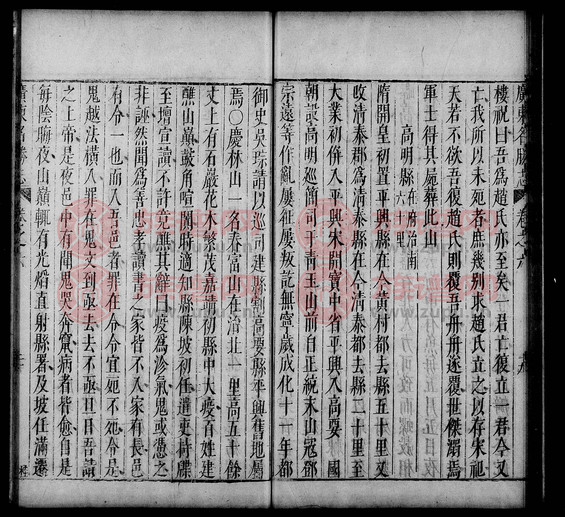 廣東名勝志 卷之六
樓祝曰吾爲趙氏亦至矣一君亡復立一君今又
亡我所以未死者庶幾別求趙氏立之以存宋祀
天若不欲吾復趙氏則覆吾舟舟遂覆世傑溺焉
軍士得其屍葬此山
高明縣 在府治南六十里
隋開皇初置平興縣在今黃村都去縣五十里又
收清泰郡爲清泰縣在今清泰都去縣二十里至
大業初併入平興宋開寶中省平興入高要 國
朝設高明巡簡司于青玉山前自正統末山寇鄧
宗遠等作亂屢征屢叛訖無寧歲成化十一年都
御史吳琮請以巡司建縣割高要縣平興舊地屬
焉〇慶林山一名春富山在治北一里高五十餘
丈上有石巖花木繁茂嘉靖初縣中大疫百姓建
醮山巔鼓角喧闐時適知縣陳坡初任遣吏持牒
至壇宣讀不許竟醮其辭曰疫爲沴氣鬼或憑之
非誣然聞爲善忠孝讀書之家皆不入家有長邑
有令一也而入吾邑者罪在令令宜死不死令是
鬼越法橫入罪在鬼文到亟去去不亟旦日吾請
之上帝是夜邑中有聞鬼哭奔竄病者皆愈自是
每陰晦夜山巔輒有光焰直射縣署及坡任滿遷
廣東名勝志 卷之六